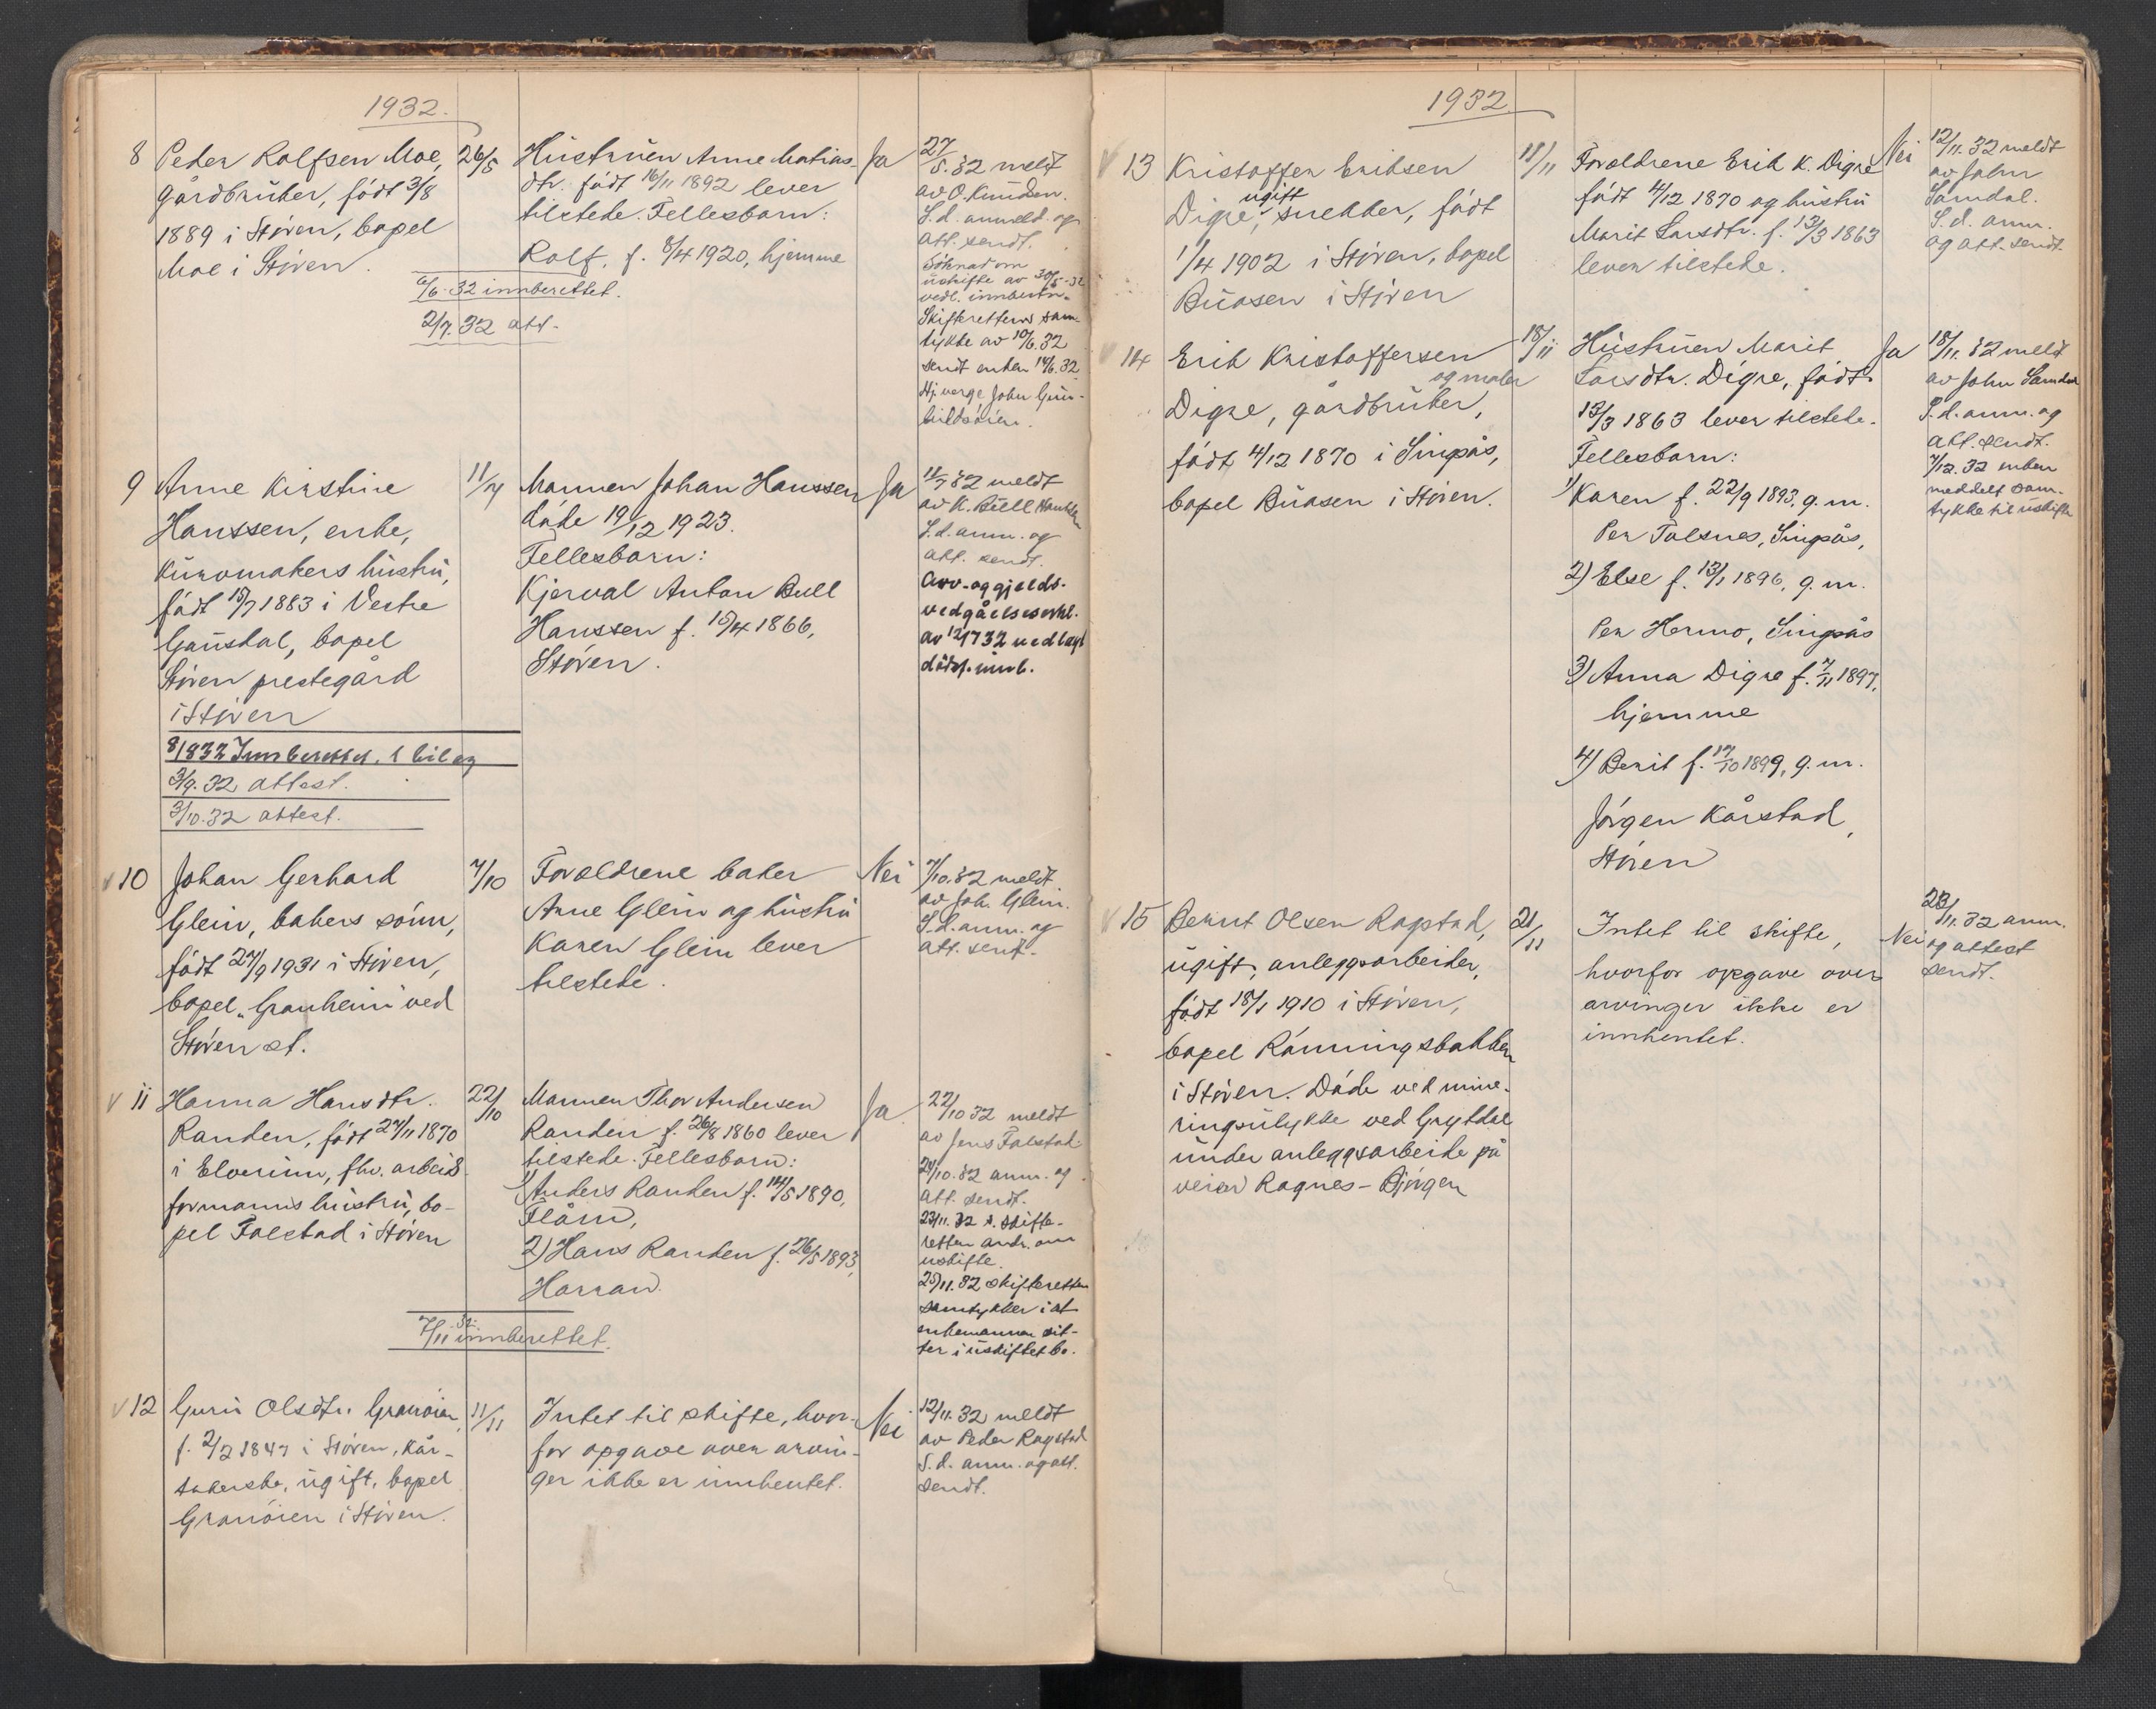 1932.
8
Peder Rolfsen Moe,
gårdbruker, født 3/8
1889 i Støren, bopel
Moe i Støren.
26/5
Hustruen Anne Matias-
dtr. født 16/11 1892 lever
tilstede. Fellesbarn:
Rolf, f. 8/4 1920, hjemme
Ja
27/5.32 meldt
av O. Knudsen.
S.d. anmeld. og
att. sendt.
Søknad om
uskifte av 30/5-32
vedl. innberetn.
Skifterettens sam-
tykke av 10/6.32
sendt enken 14/6.32
Hj.verge John
6/6-32 innberettet.
2/7.32 att.
9
Anne Kirstine
Hanssen, enke,
kuromakers hustru,
født 15/7 1883 i Vestre
Gausdal, bopel
Støren prestegård
i Støren
11/7
Mannen Johan Hanssen
døde 19/12 1923.
Fellesbarn:
Kjerval Anton Bull
Hanssen f. 15/4 1866,
Støren.
Ja
11/7 32 meldt
av K. Bull Hanssen
S.d. anm. og
att. sendt.
Arv- og gjelds-
vedgåelseserkl.
av 12/7 32 vedlagt
dødsf. innb.
8/8 32 Innberettet. 1 bilag
3/9.32 attest.
3/10.32 attest.
v 10
Johan Gerhard
Glein, bakers sønn,
født 24/9 1931 i Støren,
bopel "Granheim" ved
Støren st.
7/10
Foreldrene baker
Arne Glein og hustru
Karen Glein lever
tilstede.
Nei
7/10.32 meldt
av Joh. Glein.
S.d. anm. og
att. sent.
v 11
Hanna Hansdtr.
Randen, født 24/11 1870
i Elverum, fhv. arbeids-
formanns hustru, bo-
pel Folstad i Støren
22/10
Mannen Thor Andersen
Randen f. 26/8 1860 lever
tilstede. Fellesbarn:
1) Anders Randen f. 14/5 1890,
Flåm,
2) Hans Randen f. 26/5 1893,
Harran.
Ja
22/10 32 meldt
av Jens Folstad
24/10.32 anm. og
att. sendt.
23/11.32 t. skifte-
retten andr. om
uskifte.
25/11.32 skifteretten
samtykker i at
enkemannen sit-
ter i uskiftet bo.
7/11 32 innberettet.
v 12
Guru Olsdtr. Granøien,
f. 2/2 1847 i Støren, kår-
takerske, ugift, bopel
Granøien i Støren.
11/11
Intet til skifte, hvor-
for opgave over arvin-
ger ikke er innhentet.
Nei
12/11.32 meldt
av Peder Rogstad
S.d. anm. og att.
sendt.
1932.
v 13
Kristoffer Eriksen
ugift
Digre, snekker, født
1/4 1902 i Støren, bopel
Buasen i Støren
11/11
Foreldrene Erik K. Digre
født 4/12 1870 og hustru
Marit Larsdtr. f. 13/3 1863
lever tilstede.
Nei
12/11.32 meldt
av John
Samdal.
S.d. anm.
og att. sendt.
v 14
Erik Kristoffersen
og maler
Digre, gårdbruker,
født 4/12 1870 i Singsås,
bopel Buasen i Støren.
18/11
Hustruen Marit
Larsdtr. Digre, født
13/3 1863 lever tilstede.
Fellesbarn:
1) Karen f. 22/9 1893, g.m.
Per Talsnes, Singsås,
2) Else f. 13/1 1896, g.m.
Per Hermo, Singsås
3) Anna Digre f. 7/11 1897,
hjemme
4) Berit f. 17/10 1899, g.m.
Jørgen Kårstad,
Støren
Ja
18/11.32 meldt
av John Samdal
S.d. anm. og
att. sendt.
7/12.32 enken
meddelt sam-
tykke til uskifte
v 15
Bernt Olsen Rogstad,
ugift, anleggsarbeider,
født 18/1 1910 i Støren,
bopel Rønningsbakken
i Støren. Døde ved mine-
ringsulykke ved Grytdal
under anleggsarbeide på
veien Rognes - Bjørgen
21/11
Intet til skifte,
hvorfor opgave over
arvinger ikke er
innhentet.
Nei
23/11.32 anm.
og attest
sendt.